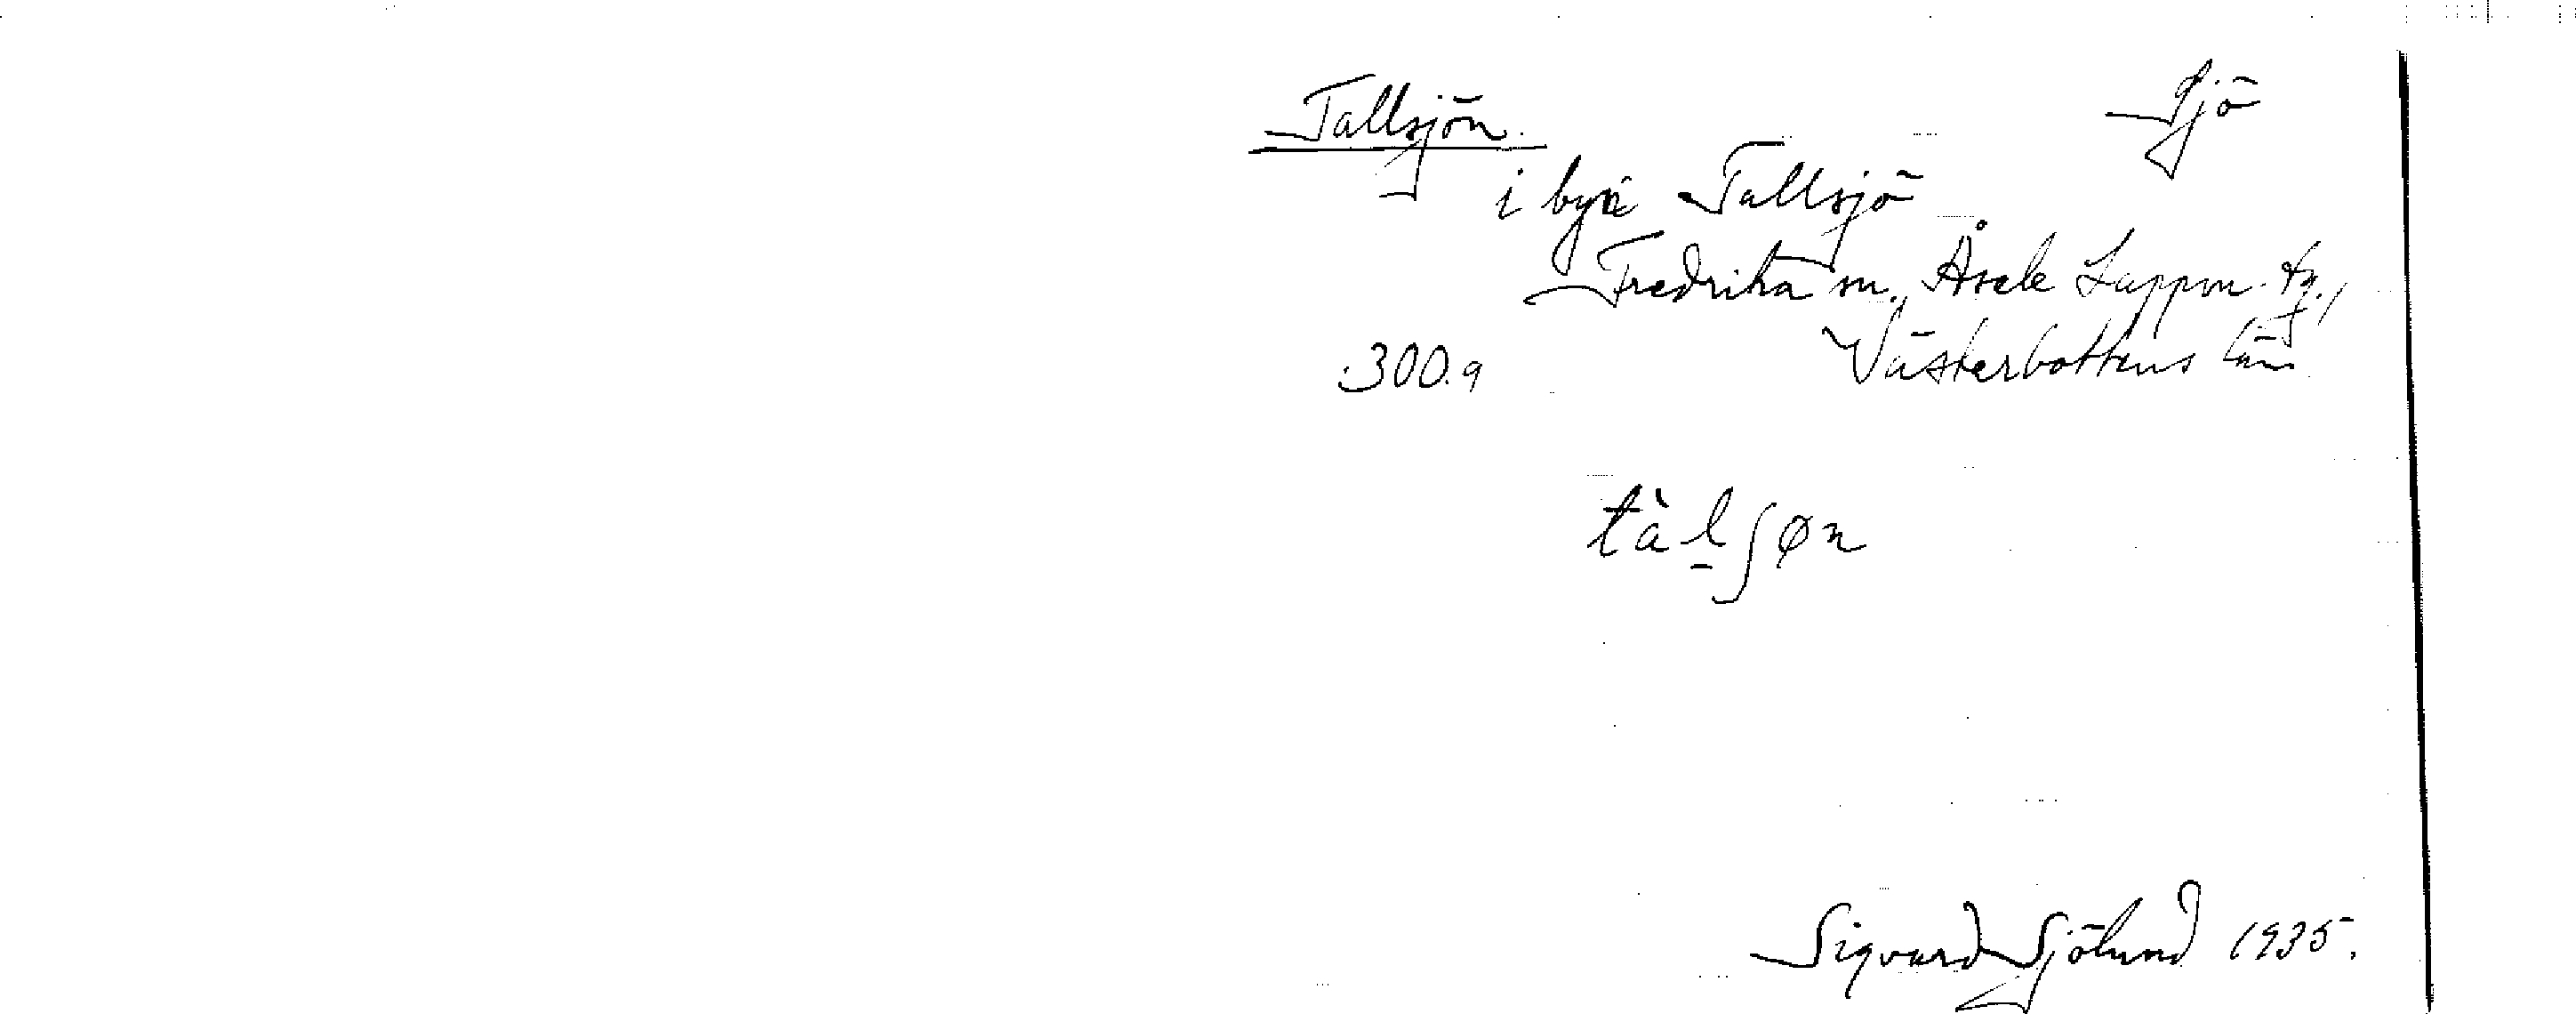 Tallsjön. Sjö
i byn Tallsjö
Fredrika sn., Åsele Lappm. tg.,
300.9 Västerbottens län
tàl̠ʃøn
Sigvard Sjölund 1935.